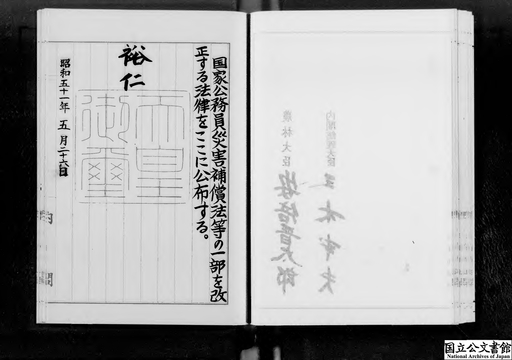 国家公務員災害補償法等の一部を改
正する法律をここに公布する。
裕仁
天皇
御璽
昭和五十一年五月二十六日
内閣
内閣総理大臣
三木武夫
農林大臣
安倍晋太郎
国立公文書館
National Archives of Japan